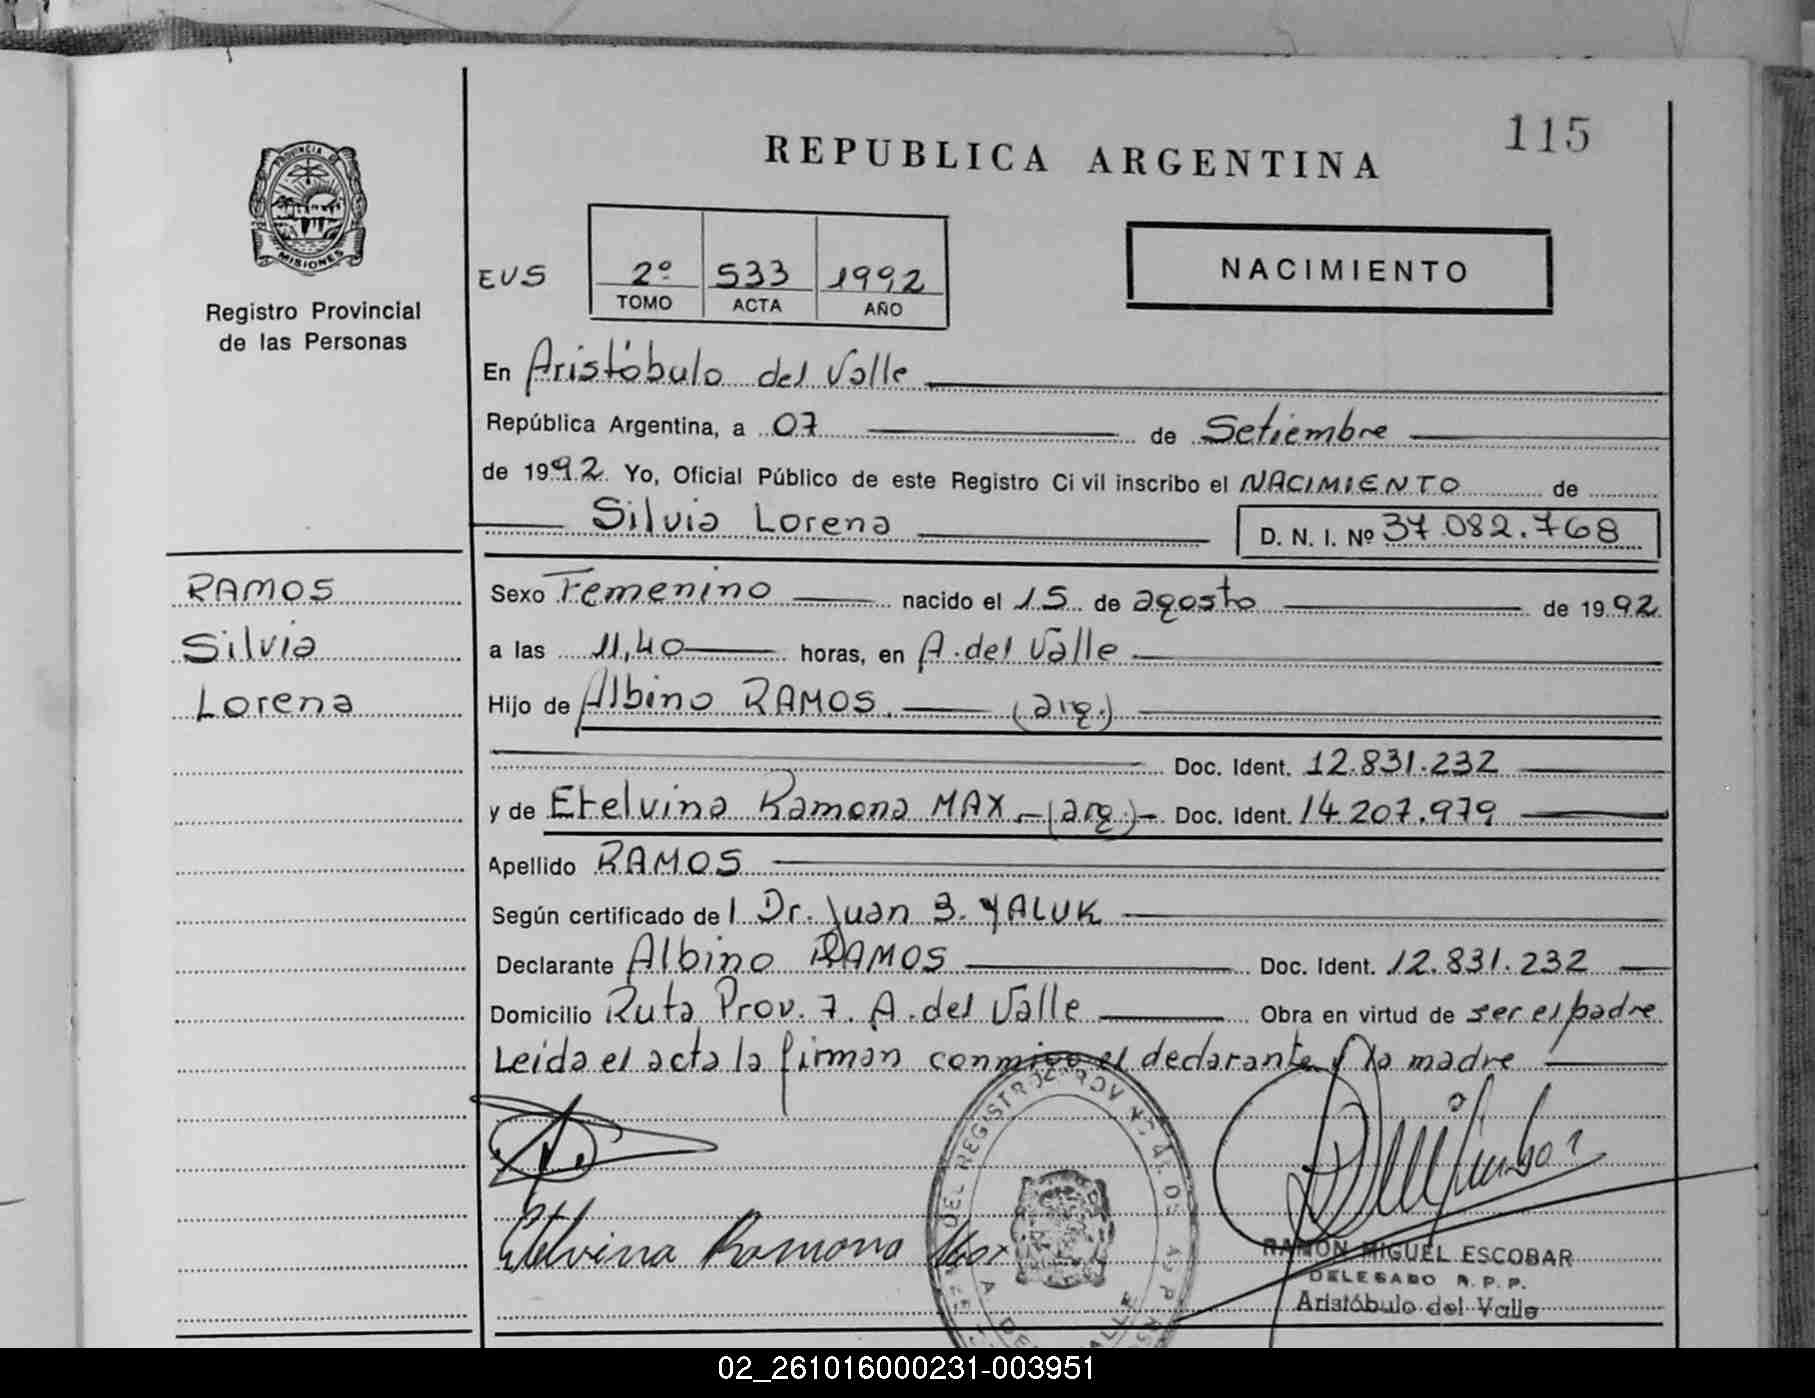 115
REPUBLICA ARGENTINA
PROVINCIA DE
MISIONES
Registro Provincial
de las Personas
NACIMIENTO
EUS 2º 533 1992
TOMO ACTA AÑO
En Aristóbulo del Valle
República Argentina, a 07 de Setiembre
de 1992 Yo, Oficial Público de este Registro Ci vil inscribo el NACIMIENTO de
Silvia Lorena D. N. I. Nº 37.082.768
RAMOS
Silvia
Lorena
Sexo Femenino nacido el 15 de agosto de 1992
a las 11,40 horas, en A. del Valle
Hijo de Albino RAMOS. (arg.)
Doc. Ident. 12.831.232
y de Etelvina Ramona MAX - (arg.) - Doc. Ident. 14.207.979
Apellido RAMOS
Según certificado del Dr. Juan B. YALUK
Declarante Albino RAMOS Doc. Ident. 12.831.232
Domicilio Ruta Prov. 7. A. del Valle Obra en virtud de ser el padre
Leida el acta la firman conmigo el declarante y la madre
Etelvina Ramona Max
RAMON MIGUEL ESCOBAR
DELEGADO R. P. P.
Aristóbulo del Valle
DEL REGISTRO PROV
02_261016000231-003951